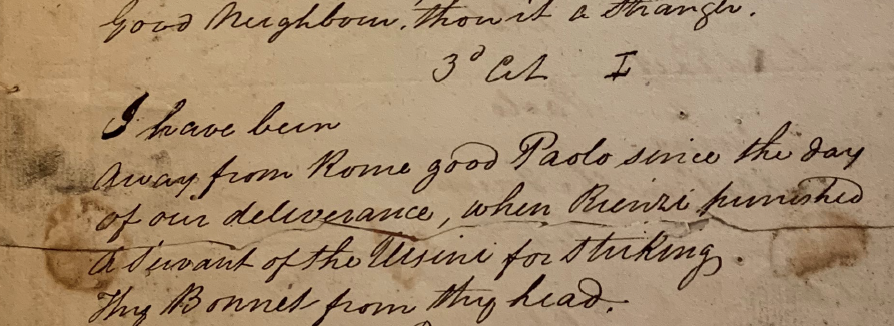 Good Neighbour, thou'rt a Stranger.
3d Act I
I have been
away from Rome good Paolo since the day
of our deliverance, when Rienzi punished
a Servant of the Ursini for striking
Thy Bonnet from thy head.